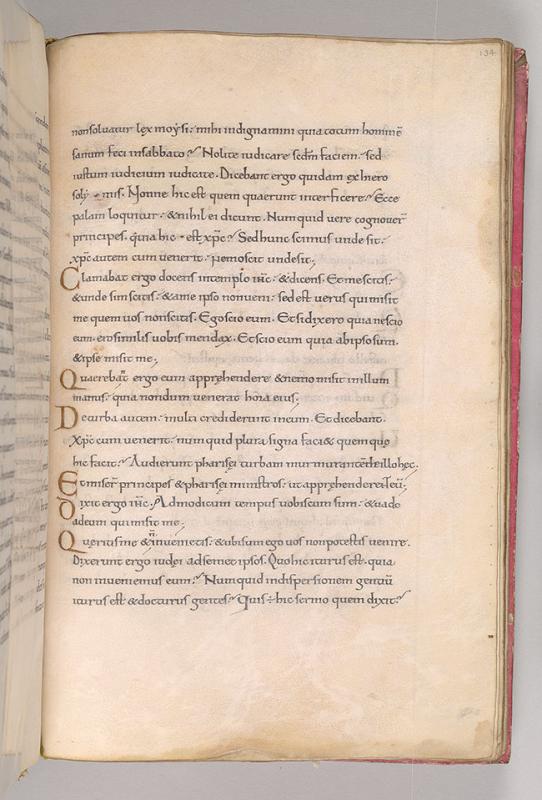 134
non soluatur lex moysi: mihi indignamini quia totum hominē
sanum feci in sabbato? Nolite iudicare scdm faciem. sed
iustum iudicium iudicate. Dicebant ergo quidam ex hiero
solymis. Nonne hic est quem quaerunt interficere? Ecce
palam loquitur. & nihil ei dicunt. Numquid uere cognouer̄
principes. quia hic est xp̄c? Sed hunc scimus unde sit.
xp̄c autem cum uenerit. nemo scit unde sit;
Clamabat ergo docens in templo ih̄c. & dicens. Et me scitis.
& unde sim scitis. & a me ipso non ueni. sed est uerus qui misit
me quem uos non scitis. Ego scio eum. Et si dixero quia nescio
eum. ero similis uobis mendax. Et scio eum quia ab ipso sum.
& ipse misit me;
Quaerebant ergo eum apprehendere & nemo misit in illum
manus. quia nondum uenerat hora eius;
De turba autem. multi crediderunt in eum. Et dicebant.
Xp̄c cum uenerit. numquid plura signa faci& quem quę
hic facit? Audierunt pharisęi turbam murmurantem de illo hęc.
Et miser̄ principes & pharisęi ministros. ut apprehenderent eū;
Dixit ergo ih̄c. Admodicum tempus uobiscum sum. & uado
ad eum qui misit me;
Queritis me & ñ inuenietis. & ubi sum ego uos non potestis uenire.
Dixerunt ergo iudei ad semet ipsos. Quo hic iturus est. quia
non inueniemus eum? Numquid in dispersionem gentiū
iturus est & docturus gentes? Quis ÷ hic sermo quem dixit?